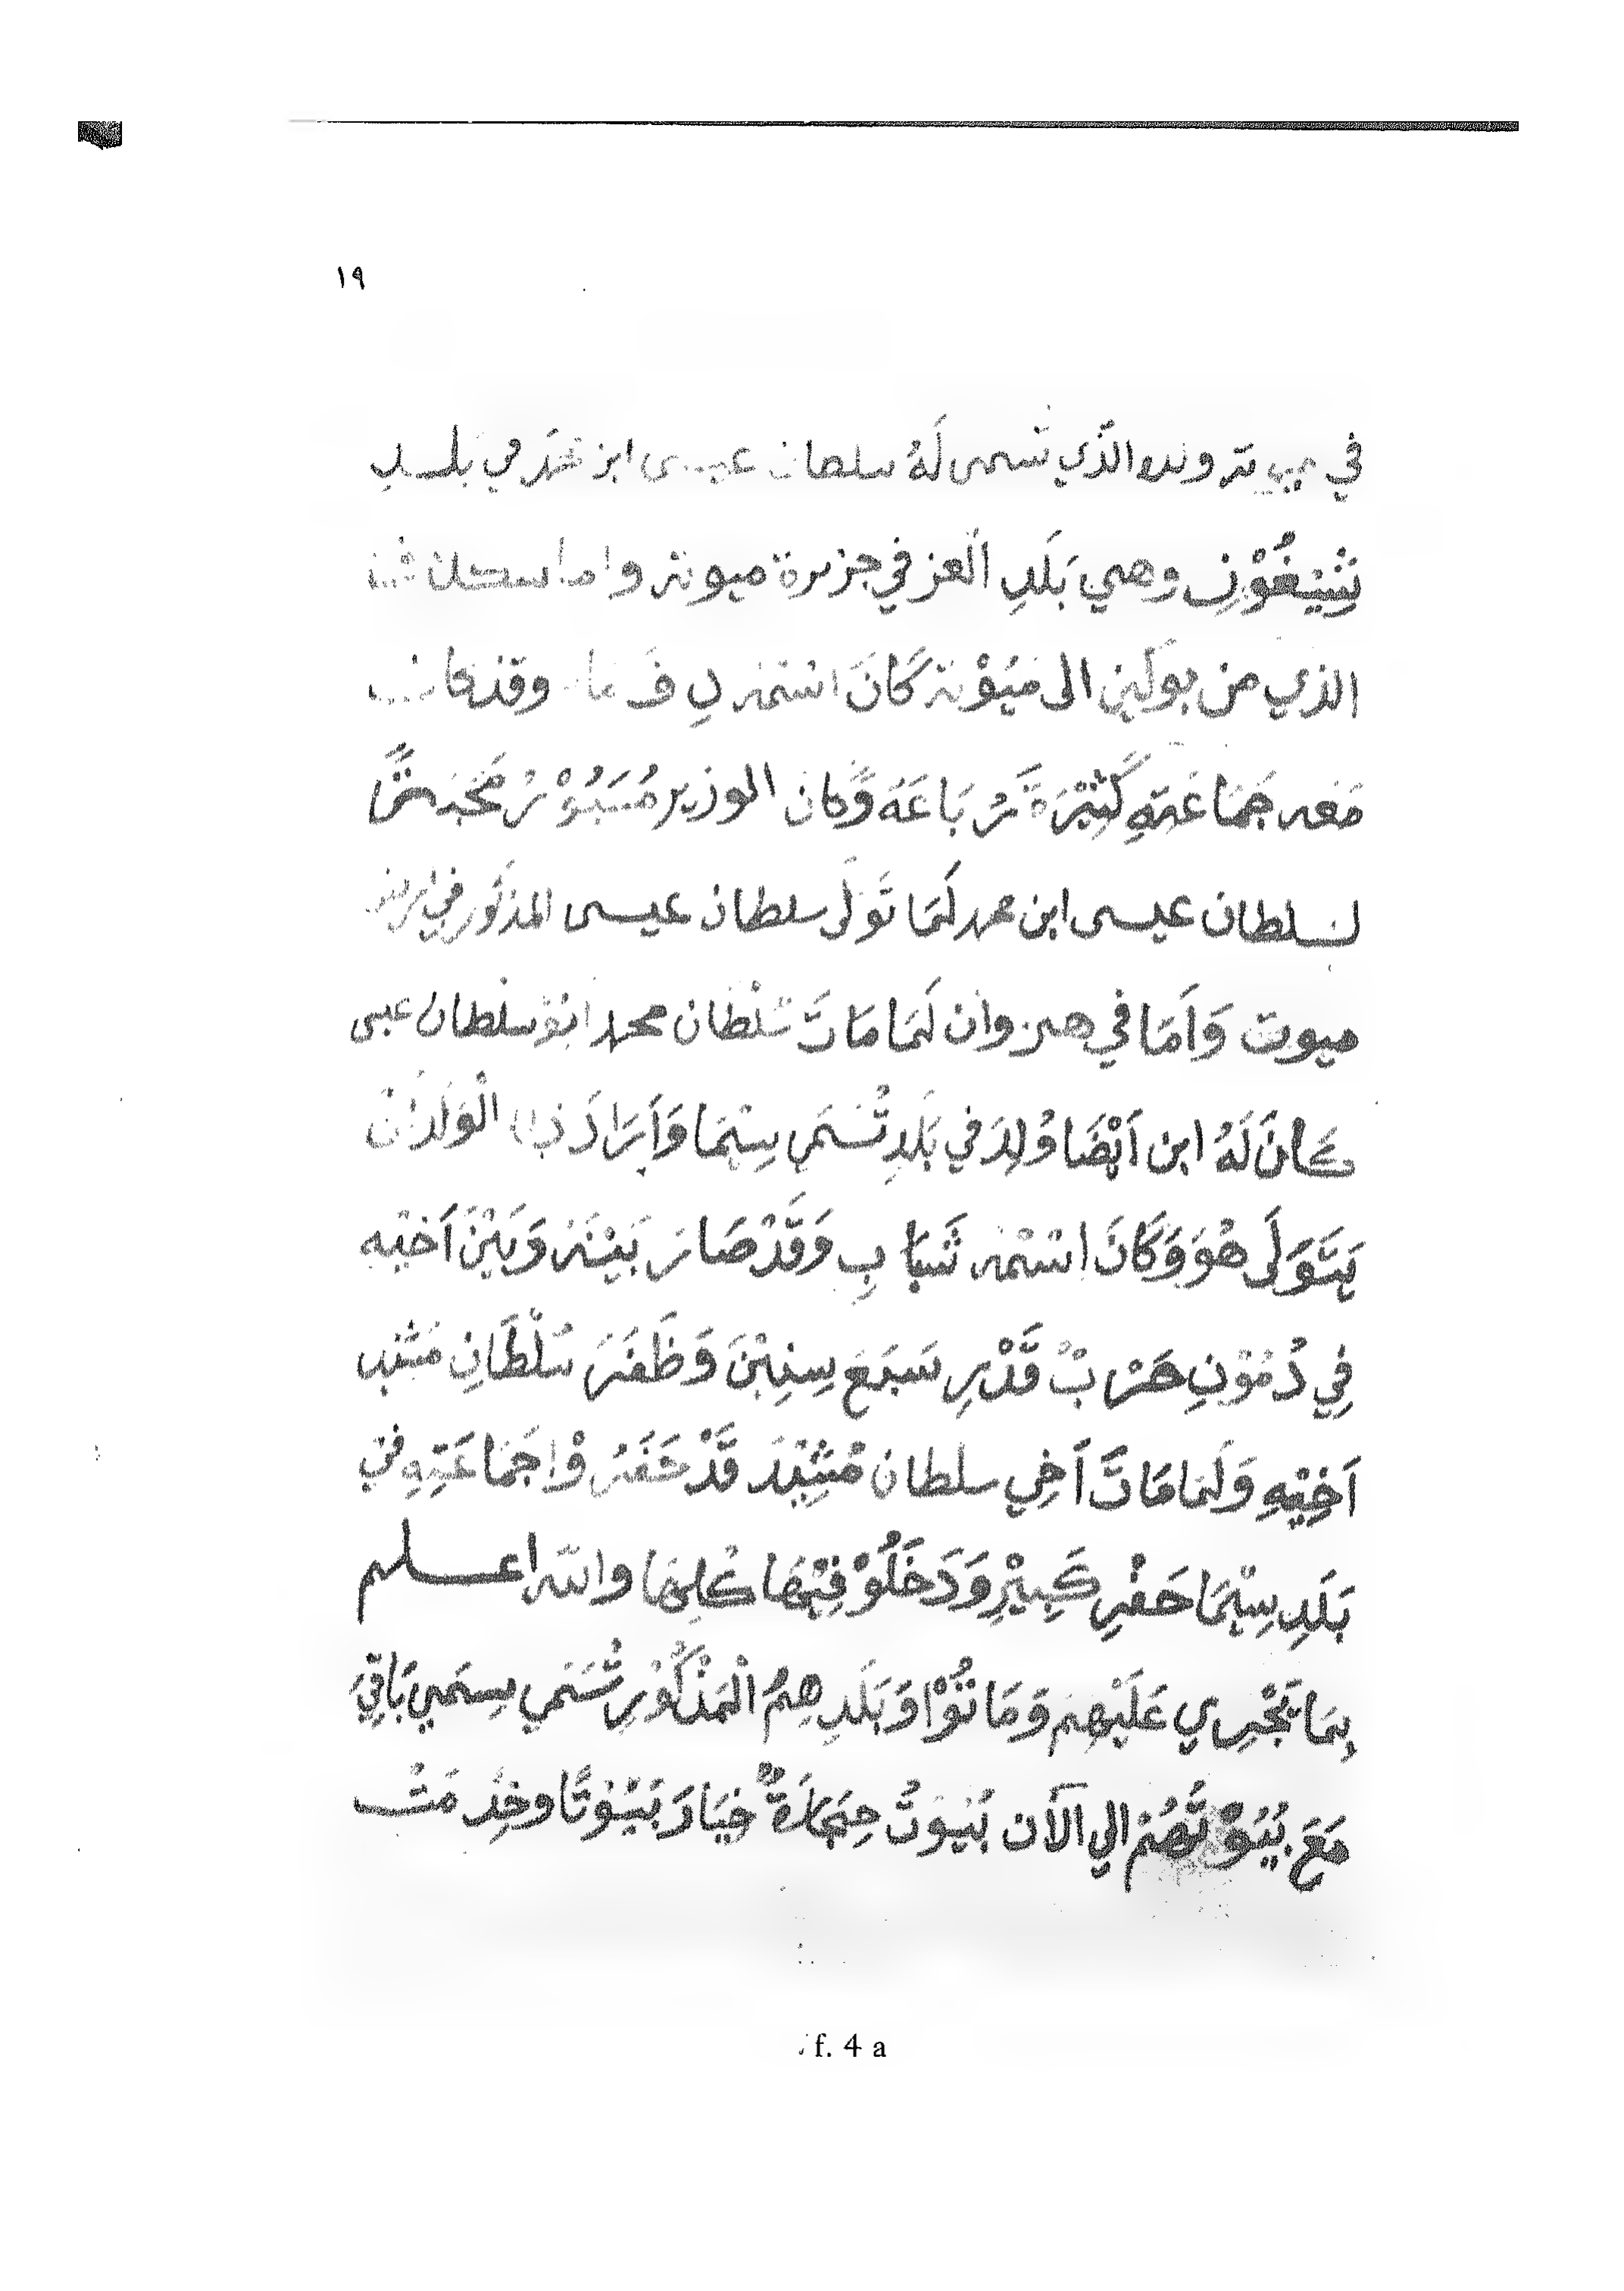 ١٩
في ميوتة وندوا الذي تسمى لَهُ سلطان عيسى ابن محمد في بلد
تِشِيْغُوْنِ وهي بَلَدِ العز في جزيرة ميوتة واما
الذي من بوكين الى مَيُوْتة كَانَ اسْمُه وقد كان
مَعه جَمَاعَتِهِ كَثِيْرَةً رُبَاعَة وَكان الوزير مُسَبُوْرُ
لسلطان عيسى ابن محمد لَمَا تَوَلَى سلطان عيسى المذكور في
ميوت وَاَمَا في هنزوان لَمَا مَاتَ سُلْطَان محمد ابُوْ سلطان عيسى
كَانَ لَهُ ابن اَيْضًا وُلِدَ في بَلَدِ تُسَمَى سِيْمَا وَاَرَادَ الْوَلَدَ اَنْ
يَتَوَلَى هُوَ وَكَانَ اسْمُه شَبَابِ وَقَدْ صَارَ بَيْنَه وَبَيْنَ اَخيْه
فِي دُمُوْنِ حَرْبْ قَدْرِ سَبَعَ سِنِيْنَ وَظَفَرَ سُلْطَانِ
اَخِيْهِ وَلَمَا مَاتَ اَخِي سلطان قَدْ حَفَرُوْا جَمَاعَتِهِ في
بَلَدِ سِيْمَا حَفْرِ كَبِيْرِ وَدَخَلُوْ فِيْهَا كُلِهَا والله اعلم
بِمَا يَجْرِي عَلَيْهِم وَمَاتُوْا وَبَلَدِهِمُ الْمَذْكُوْرِ تُسَمَى سِمَى بَاقِيَ
مَعَ بُيُوْتَهُم الي الآن بُيُوتُ حِجَارَةٌ خِيَارَ بَيُوْتًا وخِدمَتْ
f. 4 a